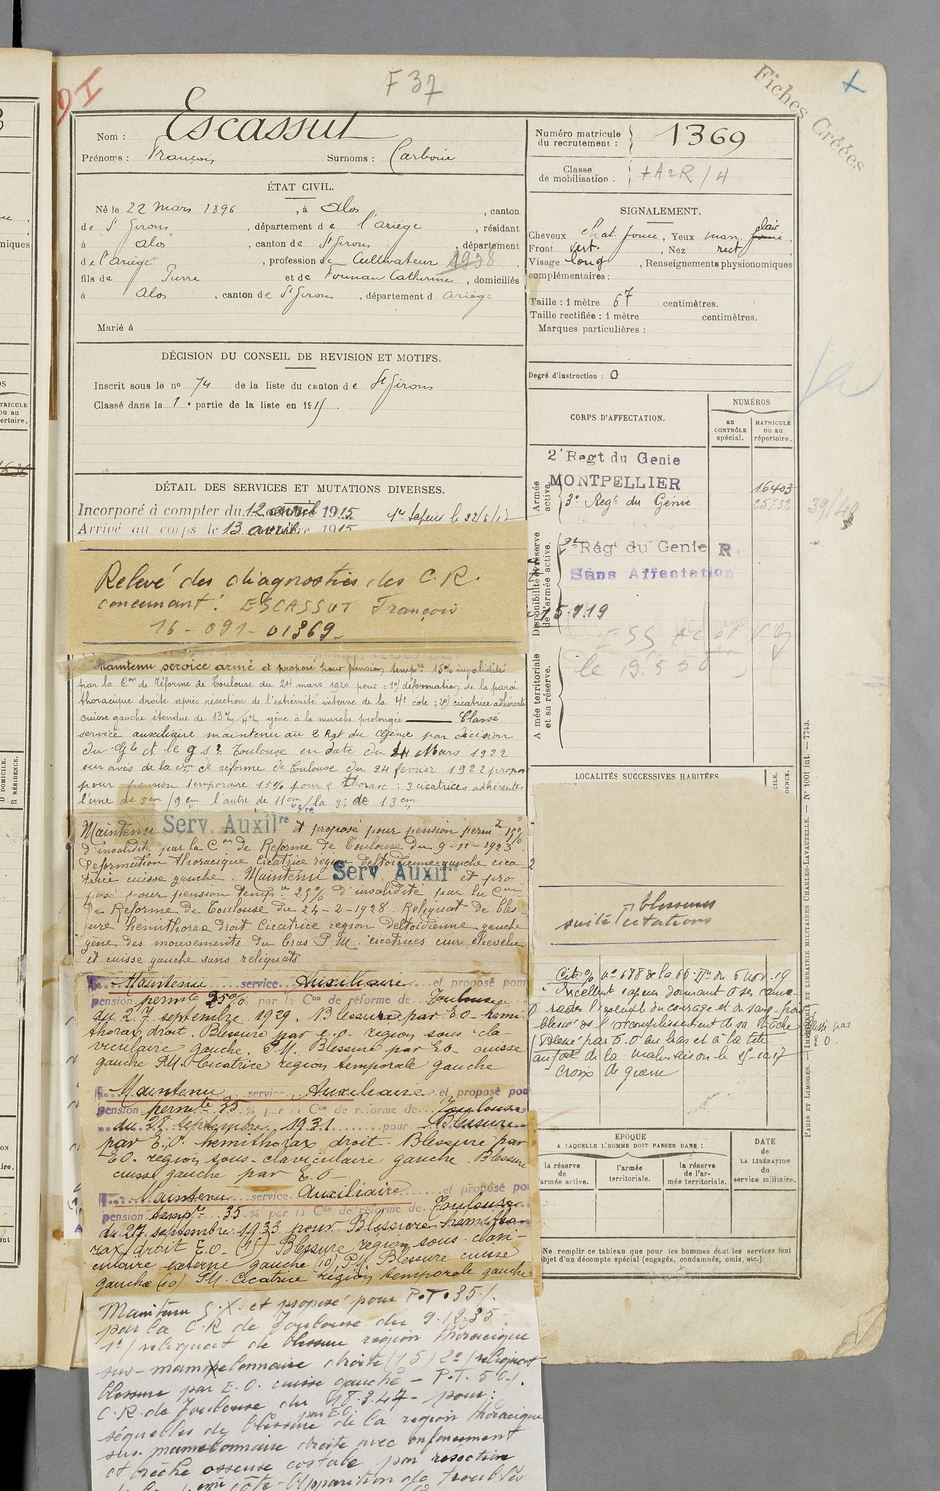 F 37
Fiches Créées
Nom : Escassut
Prénoms : François Surnoms : Carboué
ÉTAT CIVIL.
Né le 22 mars 1896, à Alos, canton
de St Girons, département de l'ariège, résidant
à Alos, canton de St Girons, département
de l'ariège, profession de Cultivateur 1938
fils de Pierre et de Catherine, domiciliés
à Alos, canton de St Girons, département d ariège
Marié à
DÉCISION DU CONSEIL DE REVISION ET MOTIFS.
Inscrit sous le no 74 de la liste du canton de St Girons
Classé dans la 1e partie de la liste en 1915
DÉTAIL DES SERVICES ET MUTATIONS DIVERSES.
Incorporé à compter du 12 avril 1915
Arrivé au corps le 13 avril 1915
Relevé des diagnostics des C.R.
concernant : ESCASSUT François
16-091-01369-
Maintenu service armé et proposé pour pension tempre 15% invalidité
par la Con de Réforme de Toulouse du 24 mars 1920 pour : 1o) déformation de la paroi
thoracique droite après résection de l'extrémité interne de la 4e côte ; 2o) cicatrice adhérente
cuisse gauche étendue de gêne à la marche prolongée Classé
service auxiliaire maintenu au 2 Rgt du Génie par décision
Toulouse en date du 24 Mars 1922
sur avis de la de réforme de Toulouse du 24 février 1922 propose
pour pension temporaire 15% pour : 3 cicatrices adhérentes
l'une de 5cm / 9cm l'autre de 11cm / de 13cm
Maintenu Serv. Auxilre et proposé pour pension permte 15%
d'invalidité par la Con de Réforme de Toulouse du 9-11-1923
Déformation thoracique cicatrice région deltoïdienne gauche cica
trice cuisse gauche. Maintenu Serv. Auxilre et pro
posé pour pension tempre 25% d'invalidité par la Con
de Réforme de Toulouse du 24-2-1928. Reliquat de bles
sure hémithorax droit cicatrice region deltoïdienne gauche
gêne des mouvements du bras P.M. cicatrices cuir chevelu
et cuisse gauche sans reliquats
Maintenu service Auxiliaire et proposé pour
pension permte 25% par la Con de réforme de Toulouse
du 27 septembre 1929. Blessure par E.O. hémi-
thorax droit. Blessure par E.O. région sous-cla-
viculaire gauche. P.M. Blessure par E.O. cuisse
gauche P.M. Cicatrice région temporale gauche
Maintenu service Auxiliaire et proposé pour
pension permte 35% par la Con de réforme de Toulouse
du 28 septembre 1931 pour Blessure
par E.O. hémithorax droit. Blessure par
E.O. région sous-claviculaire gauche. Blessure
cuisse gauche par E.O
Maintenu service Auxiliaire et proposé pour
pension tempre 35% par la Con de réforme de Toulouse
du 27 septembre 1933 pour Blessure hémitho-
rax droit E.O. Blessure région sous-clavi-
culaire externe gauche (10) P.M. Blessure cuisse
gauche (10) P.M. Cicatrice région temporale gauche
Maintenu S.X. et proposé pour P.T. 35%
par la C.R. de Toulouse du 9.12.35
1o/ reliquat de blessure région thoracique
sus-mammelonnaire droite (15) 2o/ reliquat
blessure par E.O. cuisse gauche - P.T.
C.R. de Toulouse du 18.3.47 - pour :
séquelles de blessure par E.O. de la région thoracique
sus-mamelonnaire droite avec enfoncement
et brèche osseuse costale par résection
côte - Apparition de troubles
Numéro matricule du recrutement : 1369
Classe de mobilisation :
SIGNALEMENT.
Cheveux chat. foncé, Yeux marr. clair
Front vert., Nez rect.
Visage long, Renseignements physionomiques
complémentaires :
Taille : 1 mètre 67 centimètres.
Taille rectifiée : 1 mètre centimètres.
Marques particulières :
Degré d'instruction : 0
CORPS D'AFFECTATION.
NUMÉROS
AU CONTRÔLE spécial.
MATRICULE OU AU répertoire.
Armée active.
2e Regt du Genie
MONTPELLIER
16403
3e Regt du Génie
25752
Disponibilité et réserve de l'armée active.
Rég du Genie R.
Sans Affectation
15.9.19
Armée territoriale et sa réserve.
LOCALITÉS SUCCESSIVES HABITÉES
blessures
suite citations
Cité o/ no 678 de la 66e Don du 5 nov. 19
Excellent sapeur donnant à ses cama-
rades l'exemple du courage et du sang froid
blessé de l'accomplissement de sa tâche
Blessé par E.O au bras et à la tête
au fort de la malmaison le
Croix de guerre
EPOQUE
A LAQUELLE L'HOMME DOIT PASSER DANS :
la réserve de l'armée active.
l'armée territoriale.
la réserve de l'armée territoriale.
DATE DE LA LIBÉRATION du service militaire.
Ne remplir ce tableau que pour les hommes dont les services font
objet d'un décompte spécial (engagés, condamnés, omis, etc.).
PARIS ET LIMOGES. — IMPRIMERIE ET LIBRAIRIE MILITAIRES CHARLES-LAVAUZELLE. — No 1001 int. — 7743.